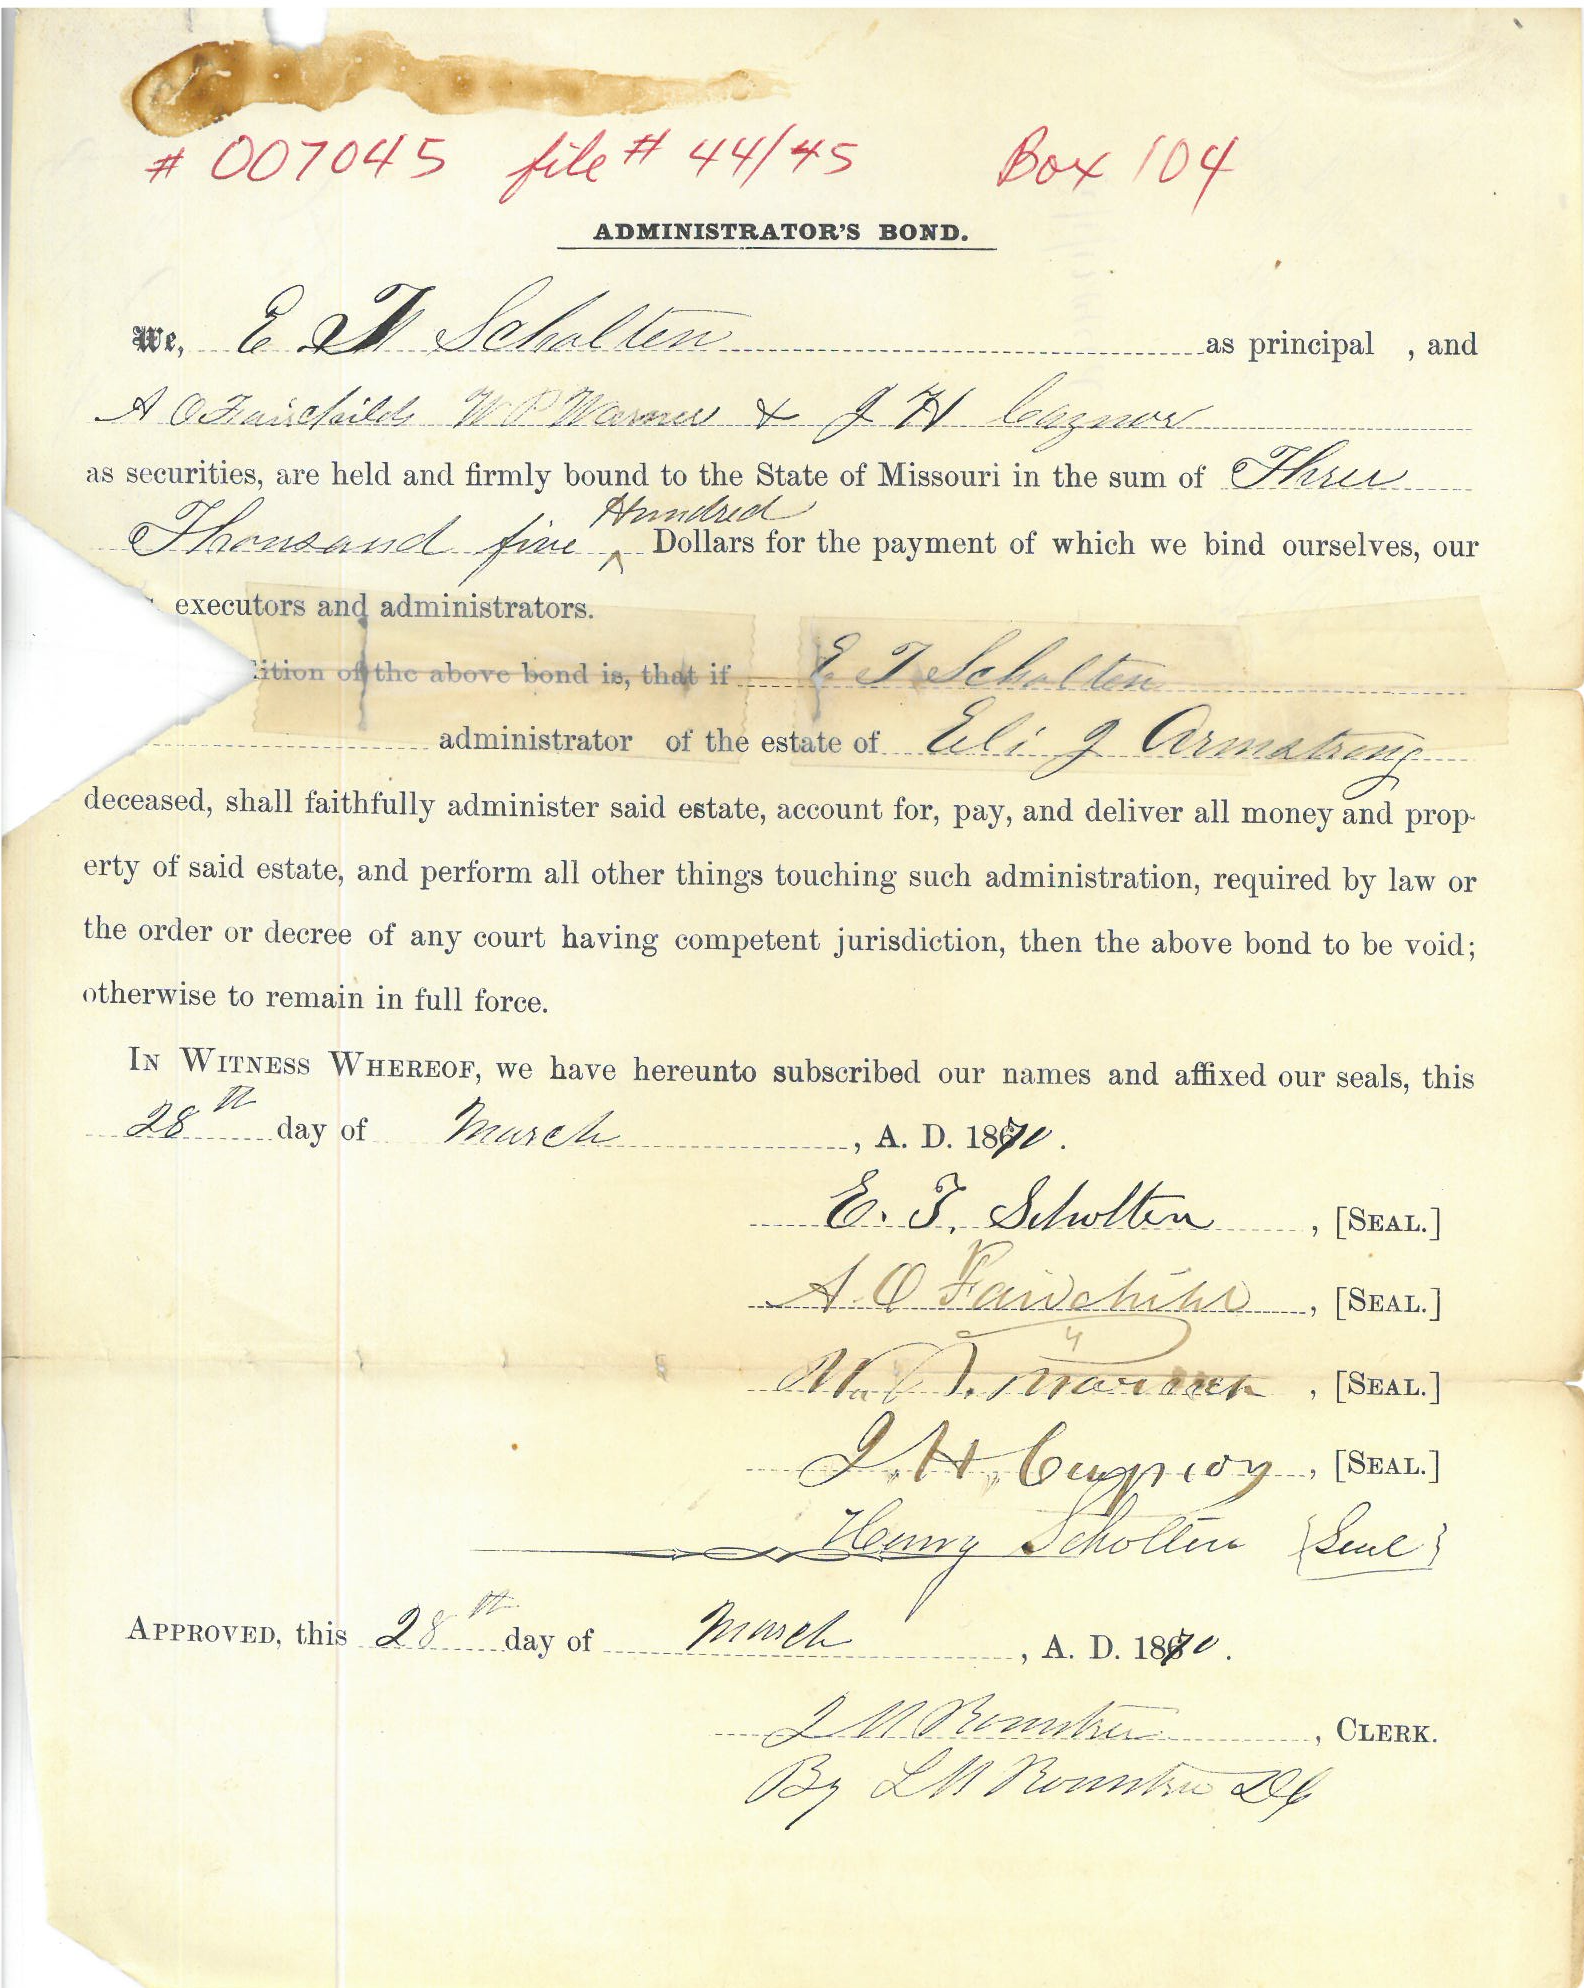 # 007045 file # 44/45 Box 104
ADMINISTRATOR'S BOND.
We, E T Scholten as principal , and
A O Fairchilds W P Warner & J H Caynor
as securities, are held and firmly bound to the State of Missouri in the sum of Three
Hundred
Thousand five ^ Dollars for the payment of which we bind ourselves, our
executors and administrators.
ition of the above bond is, that if E T Scholten
administrator of the estate of Eli J Armstrong
deceased, shall faithfully administer said estate, account for, pay, and deliver all money and prop-
erty of said estate, and perform all other things touching such administration, required by law or
the order or decree of any court having competent jurisdiction, then the above bond to be void;
otherwise to remain in full force.
IN WITNESS WHEREOF, we have hereunto subscribed our names and affixed our seals, this
28th day of March , A. D. 1870 .
E. T. Scholten , [SEAL.]
A O Fairchild , [SEAL.]
Warner , [SEAL.]
J. H. , [SEAL.]
Henry Scholten {Seal}
APPROVED, this 28th day of March , A. D. 1870 .
J M Rountree , CLERK.
By L M Rountree DC